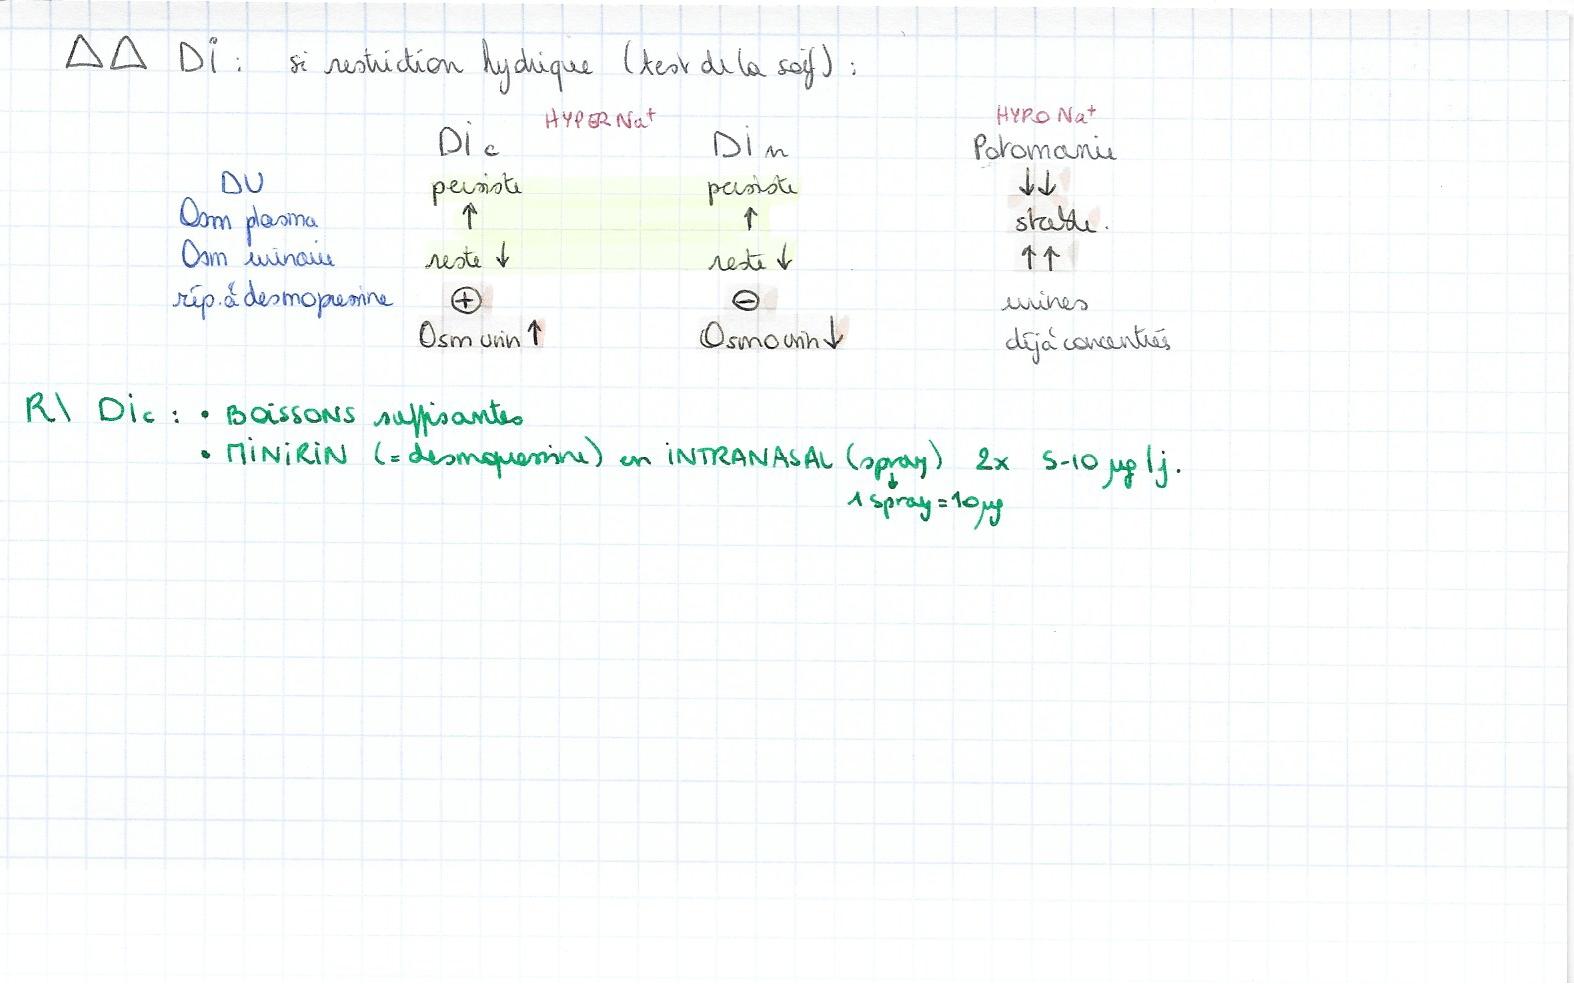 ΔΔ Di : si restriction hydrique (test de la soif) :
HYPER Na+ HYPO Na+
Di c Di n Potomanie
DU persiste persiste ↓↓
Osm plasma ↑ ↑ stable.
Osm urinaire reste ↓ reste ↓ ↑↑
rép. à desmopressine ⊕ ⊖ urines
Osm urin ↑ Osmo urin ↓ déjà concentrés
R\ Dic : • BOiSSONS suffisantes
• MiNiRiN (= desmopressine) en iNTRANASAL (spray) 2x 5-10 µg/j.
↓
1 spray = 10 µg